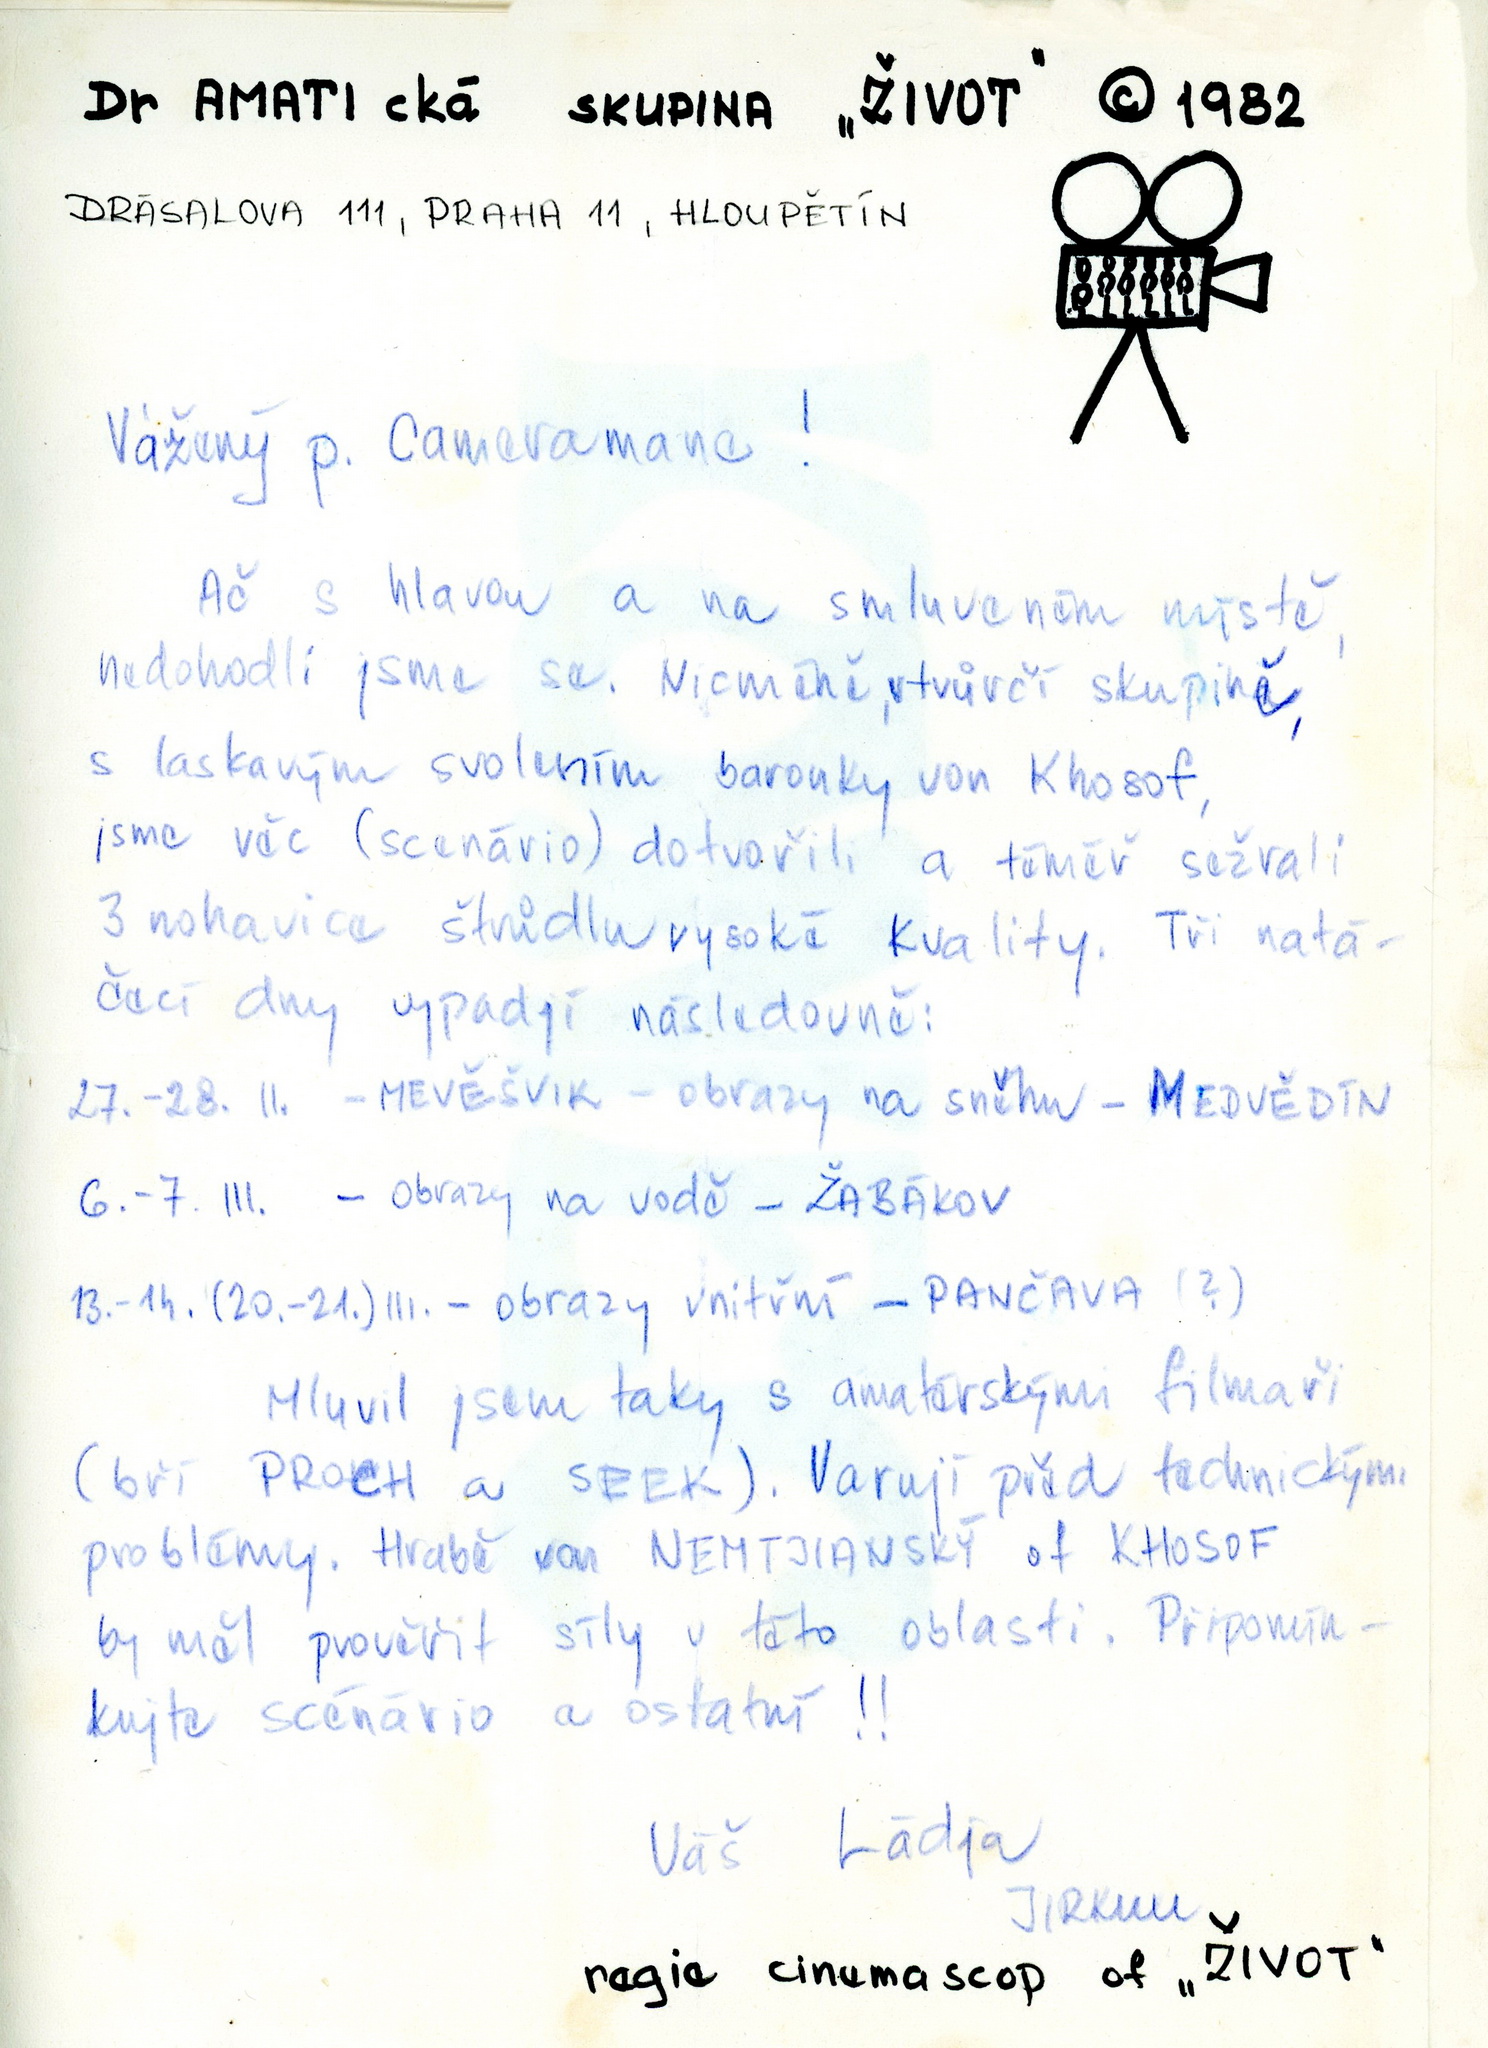 Dr AMATI cká SKUPINA „ŽIVOT" © 1982
DRÁSALOVA 111, PRAHA 11, HLOUPĚTÍN
Vážený p. Cameramane!
Ač s hlavou a na smluveném místě,
nedohodli jsme se. Nicméně, v tvůrčí skupině,
s laskavým svolením baronky von Khosof,
jsme věc (scenário) dotvořili a téměř sežrali
3 nohavice štrůdlu vysoké kvality. Tři natá-
čecí dny vypadjí následovně:
27.-28. II. - MEVĚŠVIK - obrazy na sněhu - MEDVĚDÍN
6.-7. III. - obrazy na vodě - ŽABÁKOV
13.-14. (20.-21.) III. - obrazy vnitřní - PANČAVA (?)
Mluvil jsem taky s amatérskými filmaři
(bří PROCH a SEEK). Varují před technickými
problémy. Hrabě von NEMTJIANSKÝ of KHOSOF
by měl prověřit síly v této oblasti. Připomín-
kujte scénário a ostatní!!
Váš Láďja
regie cinemascop of „ŽIVOT"